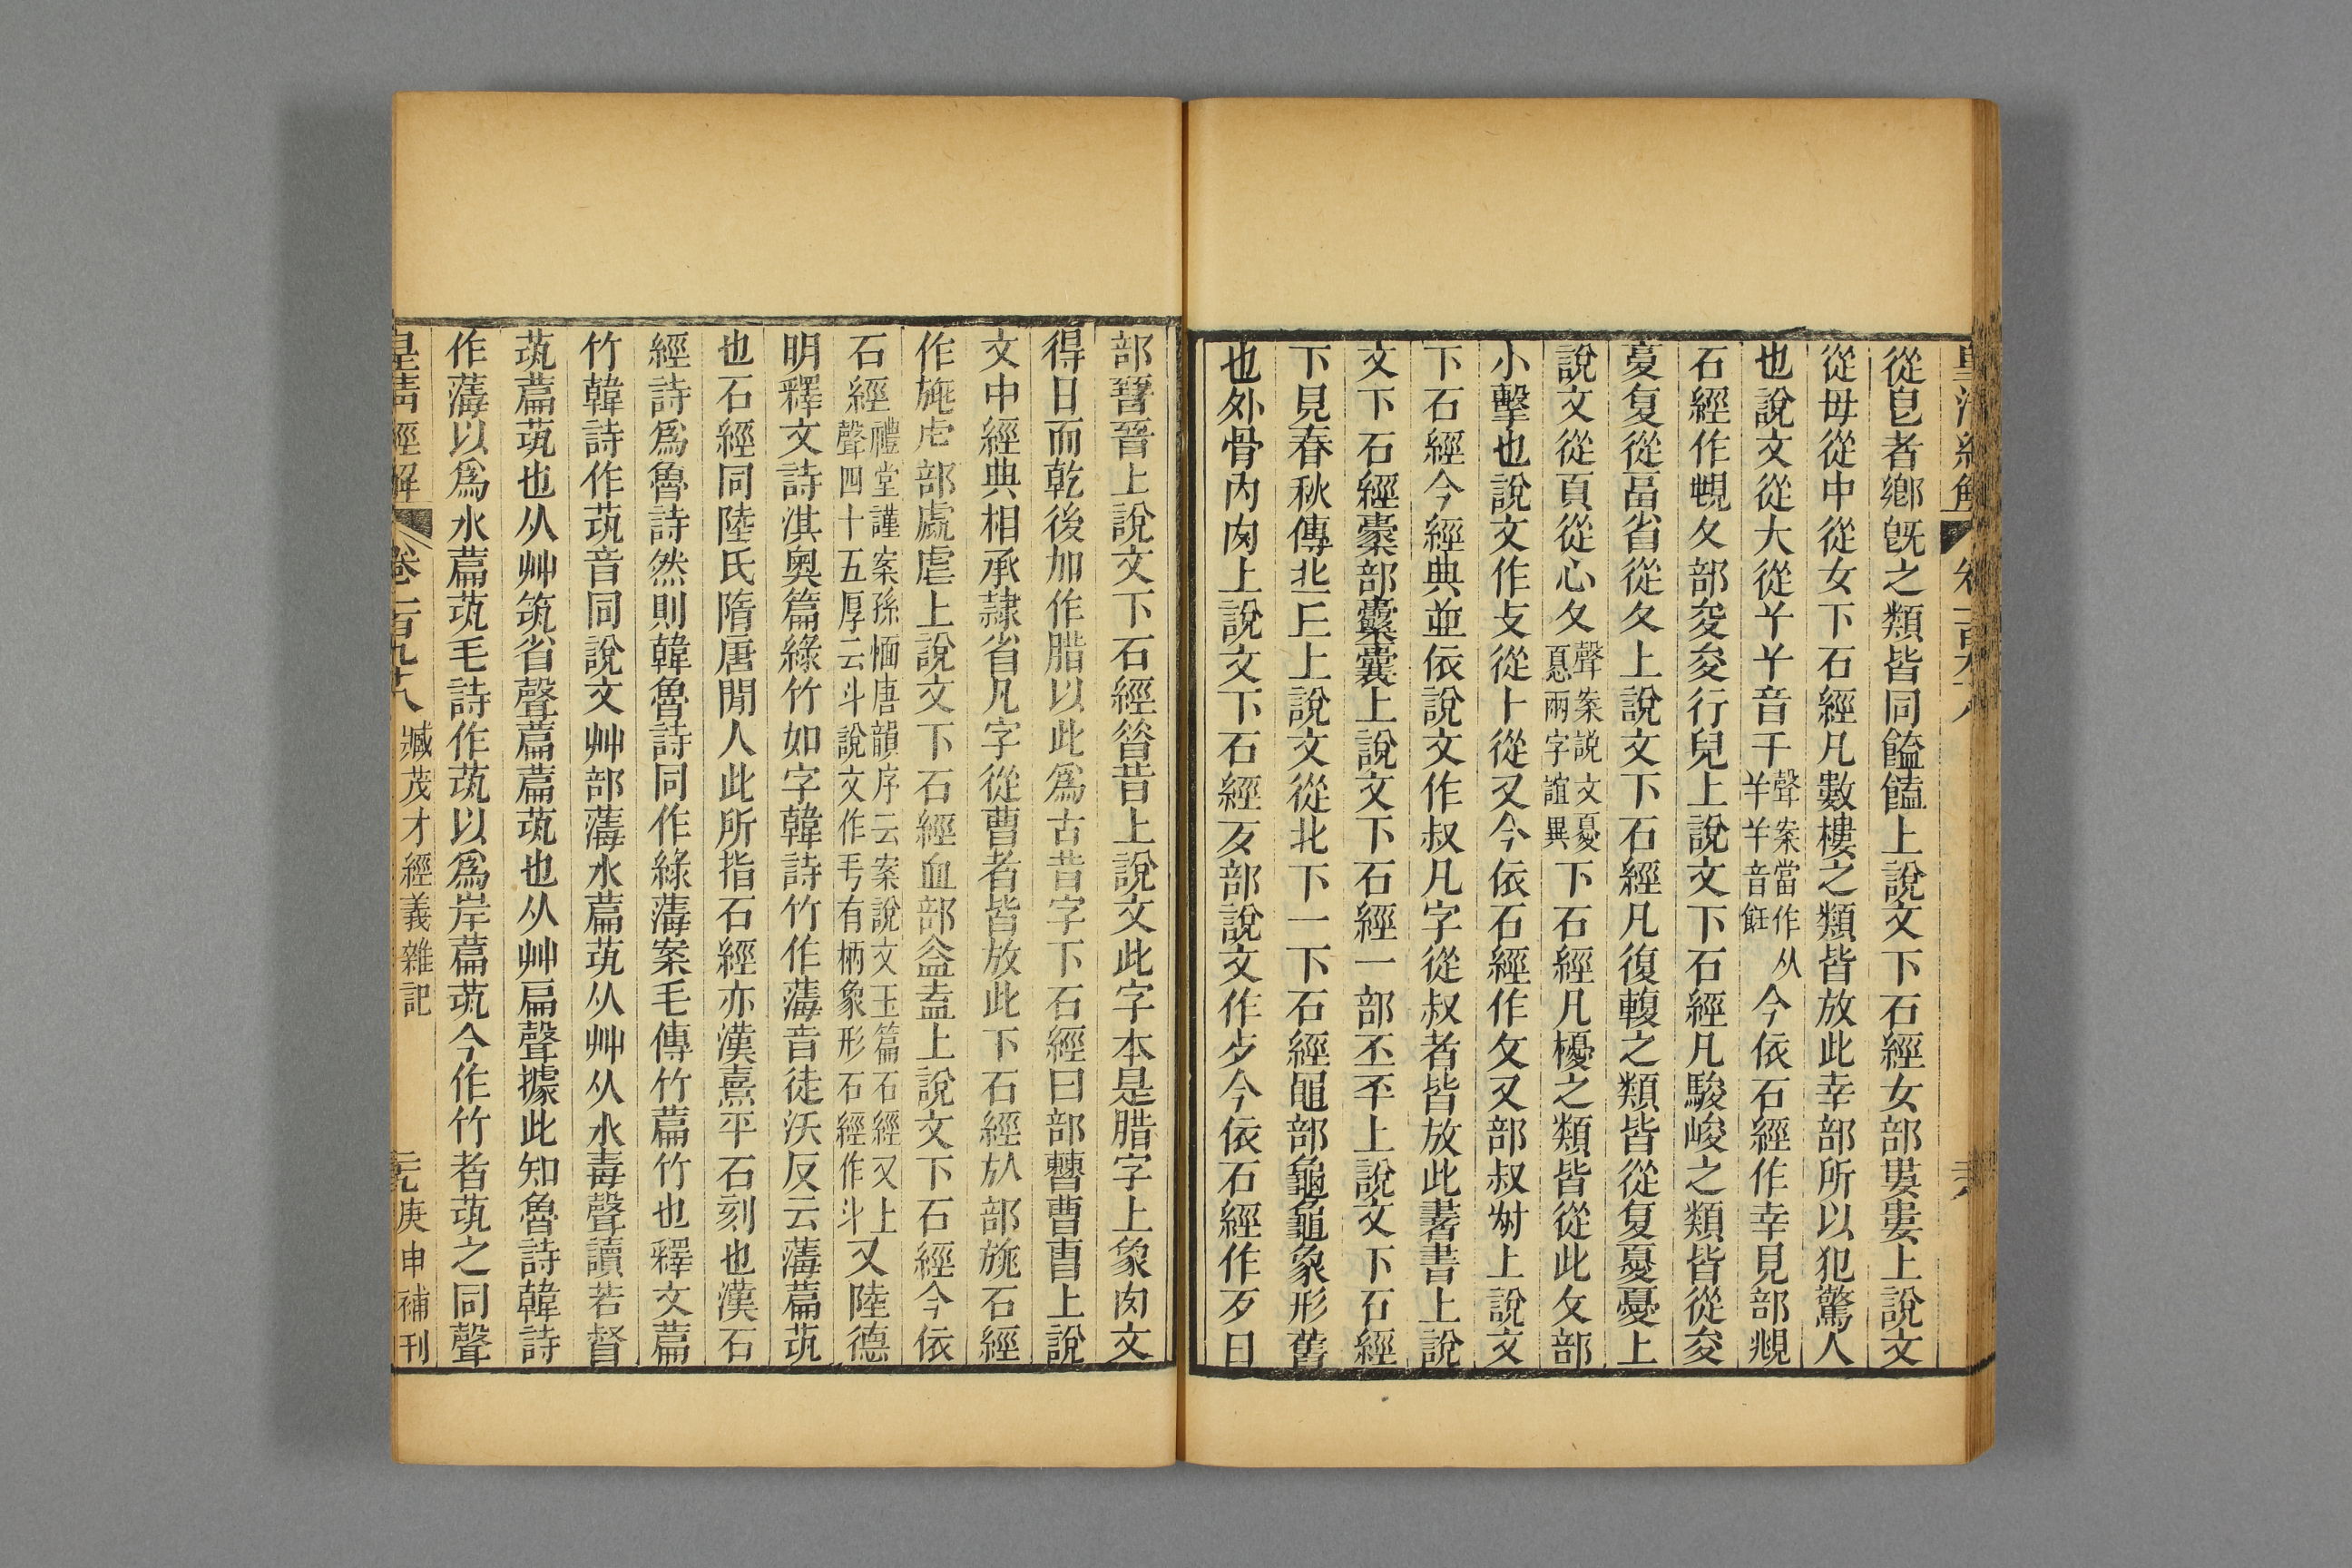 從皀者鄉旣之類皆同饁饁上說文下石經女部婁婁上說文
從毋從中從女下石經凡數樓之類皆放此幸部所以犯驚人
也說文從大從𢆉𢆉音干聲案當作从𢆉𢆉音飪今依石經作幸見部覜
石經作覜夊部夋夋行皃上說文下石經凡駿峻之類皆從夋
夏复從畐省從夂上說文下石經凡復輹之類皆從复憂憂上
說文從頁從心夂聲案說文憂㥑兩字誼異下石經凡櫌之類皆從此攵部
小擊也說文作攴從卜從又今依石經作攵又部叔𡬧上說文
下石經今經典並依說文作叔凡字從叔者皆放此書書上說
文下石經橐部囊囊上說文下石經一部丕㔻上說文下石經
下見春秋傳丠丘上說文從北下一下石經黽部龜龜象形舊
也外骨內肉上說文下石經歺部說文作歺今依石經作歹日
部䜟晉上說文下石經㫺昔上說文此字本是腊字上象肉文
得日而乾後加作腊以此爲古昔字下石經曰部𣍘曹曺上說
文中經典相承隷省凡字從曹者皆放此下石經㫃部旒石經
作旒虍部處虐上說文下石經血部益盍上說文下石經今依
石經禮堂謹案孫愐唐韻序云案說文玉篇石經又上聲四十五厚云斗說文作㪷有柄象形石經作斗又陸德
明釋文詩淇奧篇綠竹如字韓詩竹作薄音徒沃反云薄篇茿
也石經同陸氏隋唐閒人此所指石經亦漢熹平石刻也漢石
經詩爲魯詩然則韓魯詩同作綠薄案毛傳竹萹竹也釋文萹
竹韓詩作茿音同說文艸部薄水萹茿从艸从水毒聲讀若督
茿萹茿也从艸筑省聲萹萹茿也从艸扁聲據此知魯詩韓詩
作薄以爲水萹茿毛詩作茿以爲岸萹茿今作竹者茿之同聲
皇清經解 卷二百九十八 臧茂才經義雜記 元 庚申補刊